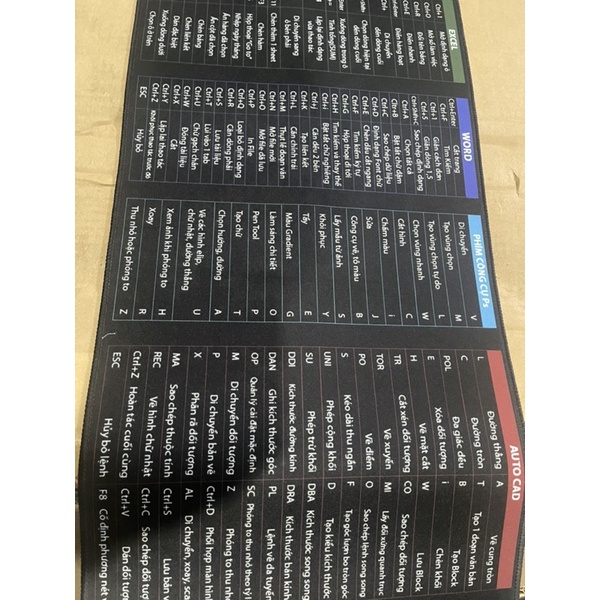 EXCEL
Ctrl+1 Mở định dạng ô
Ctrl+O Mở sổ làm việc
Ctrl+S
Ctrl+E Điền nhanh
Điền hàng loạt
Di chuyển đến dòng cuối
Chọn dòng hiện tại đến dòng cuối
Xuống dòng trong ô
Tính tổng(SUM)
Lặp lại định dạng vừa thao tác
Di chuyển sang ô bên phải
Chèn thêm 1 sheet
F3 Chèn hàm
Hộp thoại "Go to"
Nhập ngày tháng
Ẩn hàng đã chọn
Ẩn cột đã chọn
Chèn bảng
Chèn liên kết
Dán đặc biệt
Xuống dòng dưới
Chọn ô ở trên
WORD
Ctrl+Enter Cắt trang
Ctrl+F Tìm Kiếm
Ctrl+1 Giãn cách đơn
Ctrl+5 Giãn dòng 1,5
Ctrl+Shift+C Sao chép định dạng
Ctrl+A Chọn tất cả
Ctr+B Bật tắt chữ đậm
Ctrl+C Sao chép dữ liệu
Ctrl+D Định dạng Font chữ
Ctrl+E Chèn dấu cắt ngang
Ctrl+F Tìm kiếm ký tự
Ctrl+G Hộp thoại đi tới
Ctrl+H Tìm kiếm và thay thế
Ctrl+I Bật tắt chữ nghiêng
Ctrl+J Căn đều 2 bên
Ctrl+K Tạo liên kết
Ctrl+L Căn chỉnh trái
Ctrl+M Thụt lề đoạn văn
Ctrl+N Mở file mới
Ctrl+O Mở file đã lưu
Ctrl+P In File
Ctrl+Q Loại bỏ định dạng
Ctrl+R Căn dòng phải
Ctrl+S Lưu tài liệu
Ctrl+T Lùi vào 1 tab
Ctrl+U Chữ gạch chân
Ctrl+W Đóng tài liệu
Ctrl+X Cắt
Ctrl+Y Lặp lại thao tác
Ctrl+Z Khôi phục thao tác trước đó
ESC Hủy bỏ
PHÍM CÔNG CỤ Ps
Di chuyển V
Tạo vùng chọn M
Tạo vùng chọn tự do L
Chọn vùng nhanh W
Cắt hình C
Chấm màu i
Sửa J
Công cụ vẽ, tô màu B
Lấy mẫu từ ảnh S
Khôi phục Y
Tẩy E
Màu Gradient G
Làm sáng chi tiết O
Pen Tool P
Tạo chữ T
Chọn hướng, đường A
Vẽ các hình elip, chữ nhật, đường thẳng U
Xem ảnh khi phóng to H
Xoay R
Thu nhỏ hoặc phóng to Z
AUTO CAD
L Đường thẳng A Vẽ cung tròn
C Đường tròn T Tạo 1 đoạn văn bản
POL Đa giác đều B Tạo Block
E Xóa đối tượng i Chèn khối
H Vẽ mặt cắt W Lưu Block
TR Cắt xén đối tượng CO Sao chép đối tượng
TOR Vẽ xuyến MI Lấy đối xứng quanh trục
PO Vẽ điểm O Sao chép lệnh song song
S Kéo dài thu ngắn F Tạo góc lượn bo tròn góc
UNI Phép cộng khối D Tạo kiểu kích thước
SU Phép trừ khối DBA Kích thước song song
DDI Kích thước đường kính DRA Kích thước bán kính
DAN Ghi kích thước góc PL Lệnh vẽ đa tuyến
OP Quản lý cài đặt mặc định SC Phóng to thu nhỏ theo tỷ
M Di chuyển đối tượng Z Phóng to thu nhỏ
P Di chuyển bản vẽ Ctrl+D Phối hợp màn hình
X Phân rã đối tượng AL Di chuyển, xoay, sca
MA Sao chép thuộc tính Ctrl+S Lưu bản v
REC Vẽ hình chữ nhật Ctrl+C Sao chép đối tượ
Ctrl+Z Hoàn tác cuối cùng Ctrl+V Dán đối tượ
ESC Hủy bỏ lệnh F8 Cố định phương nét